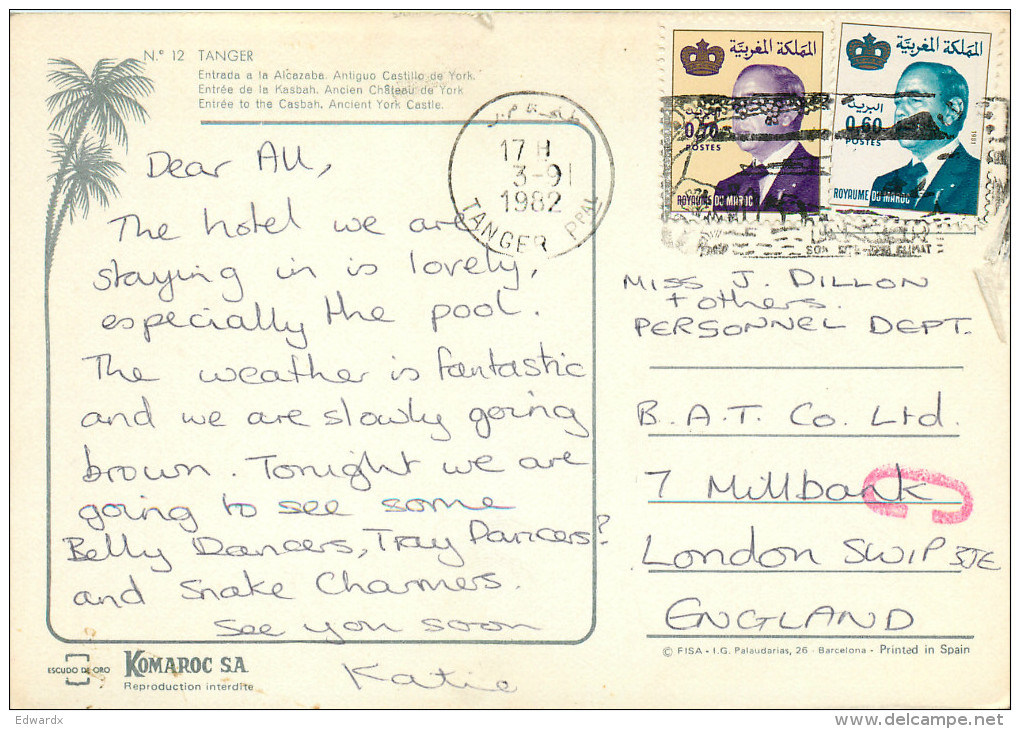 N.º 12 TANGER
Entrada a la Alcazaba. Antiguo Castillo de York.
Entrée de la Kasbah. Ancien Château de York
Entrée to the Casbah. Ancient York Castle.
Dear All,
The hotel we are
staying in is lovely,
especially the pool.
The weather is fantastic
and we are slowly going
brown. Tonight we are
going to see some
Belly Dancers, Tray Dancers?
and Snake Charmers.
See you soon
Katie
17 H
3-9
1982
TANGER PPAL
المملكة المغربية
POSTES
ROYAUME DU MAROC
المملكة المغربية
البريد
0,60
POSTES
1981
ROYAUME DU MAROC
MISS J. DILLON
+ others.
PERSONNEL DEPT.
B.A.T. Co. Ltd.
7 Millbank
London SW1P 3JE
ENGLAND
© FISA - I.G. Palaudarias, 26 - Barcelona - Printed in Spain
ESCUDO DE ORO
KOMAROC S.A.
Reproduction interdite
Edwardx
delcampe.net